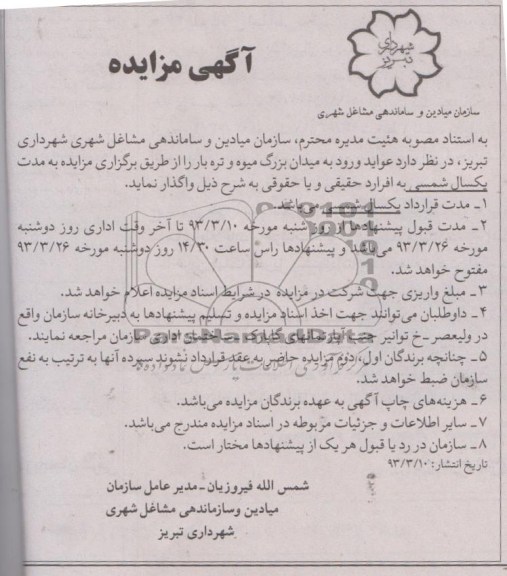 شهرداری
تبریز
آگهی مزایده
سازمان میادین و ساماندهی مشاغل شهری
به استناد مصوبه هئیت مدیره محترم، سازمان میادین و ساماندهی مشاغل شهری شهرداری
تبریز، در نظر دارد عواید ورود به میدان بزرگ میوه و تره بار را از طریق برگزاری مزایده به مدت
یکسال شمسی به افراد حقیقی و یا حقوقی به شرح ذیل واگذار نماید.
۱ـ مدت قرارداد یکسال شمسی می باشد.
۲ـ مدت قبول پیشنهادها از روز شنبه مورخه ۹۳/۳/۱۰ تا آخر وقت اداری روز دوشنبه
مورخه ۹۳/۳/۲۶ می‌باشد و پیشنهادها راس ساعت ۱۴/۳۰ روز دوشنبه مورخه ۹۳/۳/۲۶
مفتوح خواهد شد.
۳ـ مبلغ واریزی جهت شرکت در مزایده در شرایط اسناد مزایده اعلام خواهد شد.
۴ـ داوطلبان می‌توانند جهت اخذ اسناد مزایده و تسلیم پیشنهادها به دبیرخانه سازمان واقع
در ولیعصر ـ خ توانیر جنب آپارتمانهای اداری سازمان مراجعه نمایند.
۵ـ چنانچه برندگان اول، دوم مزایده حاضر به عقد قرارداد نشوند سپرده آنها به ترتیب به نفع
سازمان ضبط خواهد شد.
۶ـ هزینه‌های چاپ آگهی به عهده برندگان مزایده می‌باشد.
۷ـ سایر اطلاعات و جزئیات مربوطه در اسناد مزایده مندرج می‌باشد.
۸ـ سازمان در رد یا قبول هر یک از پیشنهادها مختار است.
تاریخ انتشار: ۹۳/۳/۱۰
شمس الله فیروزیان ـ مدیر عامل سازمان
میادین وسازماندهی مشاغل شهری
شهرداری تبریز